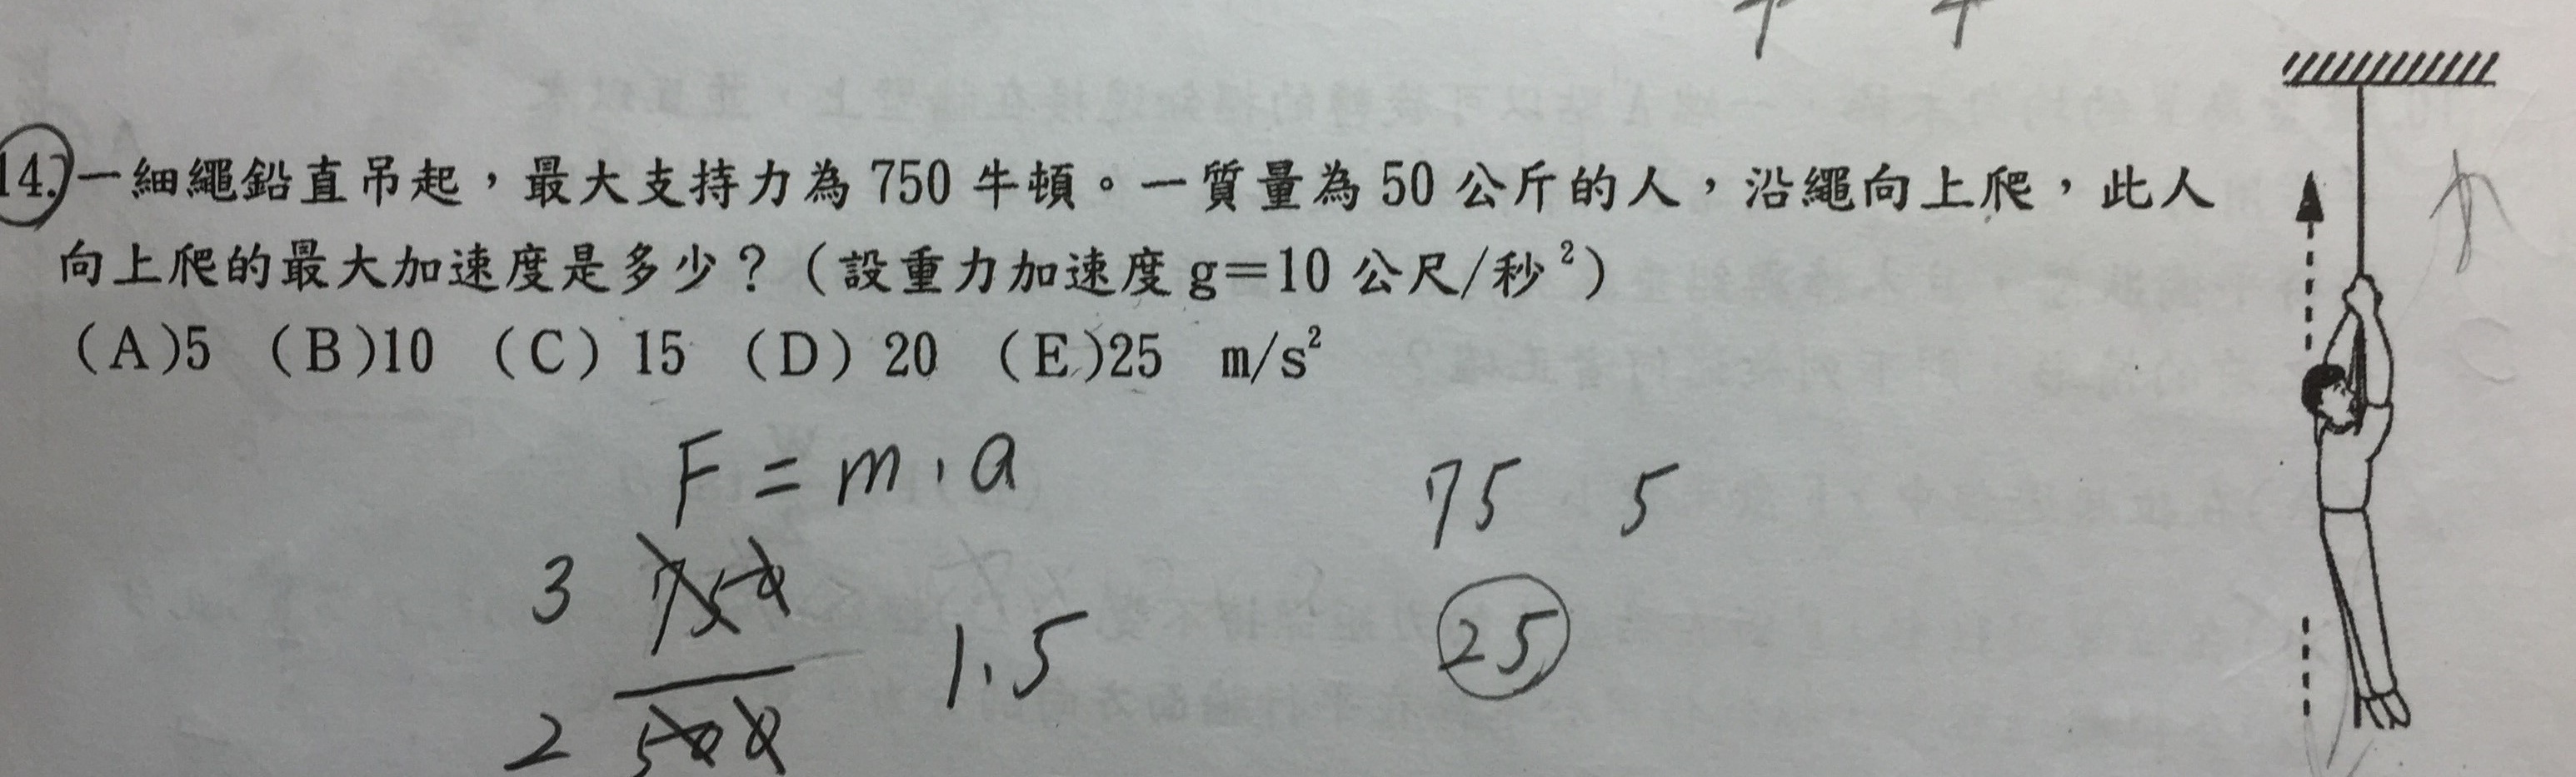 14.一細繩鉛直吊起，最大支持力為 750 牛頓。一質量為 50 公斤的人，沿繩向上爬，此人
向上爬的最大加速度是多少？（設重力加速度 g＝10 公尺/秒²）
（A)5 （B)10 （C）15 （D）20 （E)25 m/s²
F = m . a
75 5
3 750
1.5
25
2 500